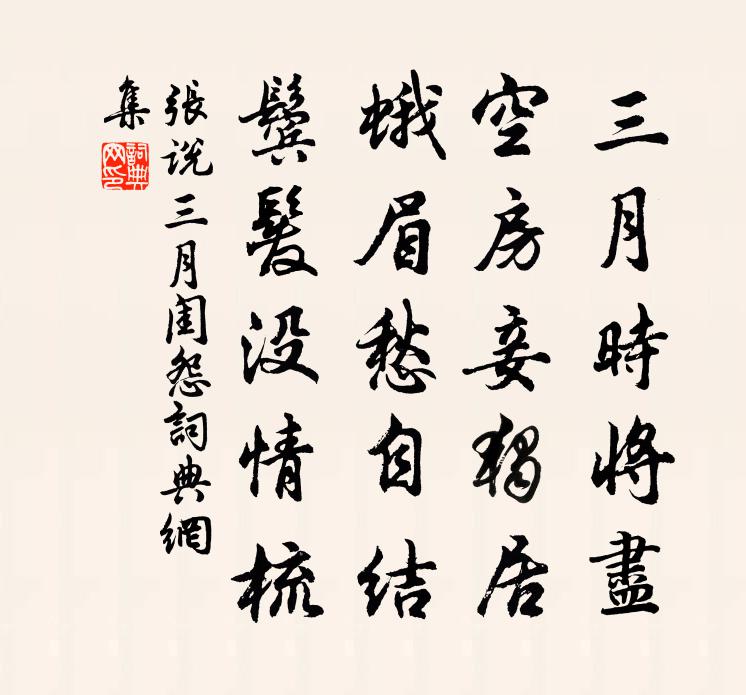 三月時將盡
空房妾獨居
蛾眉愁自結
鬢髮没情梳
張說三月閨怨詞典網
集
詞典
网印